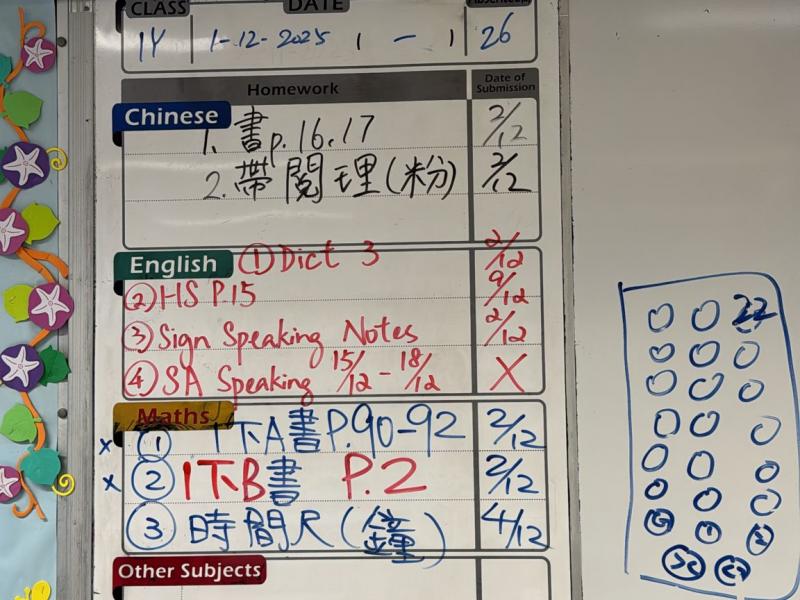 CLASS DATE
1Y 1-12-2025 1 — 1 26
Homework Date of Submission
Chinese
1. 書p.16,17 2/12
2. 帶閱理(粉) 2/12
English ① Dict 3 2/12
② HS P.15 9/12
③ Sign Speaking Notes 2/12
④ SA Speaking 15/12 - 18/12 X
Maths
x ① 1下A書P.90-92 2/12
x ② 1下B書 P.2 2/12
③ 時間尺(鐘) 4/12
Other Subjects
22